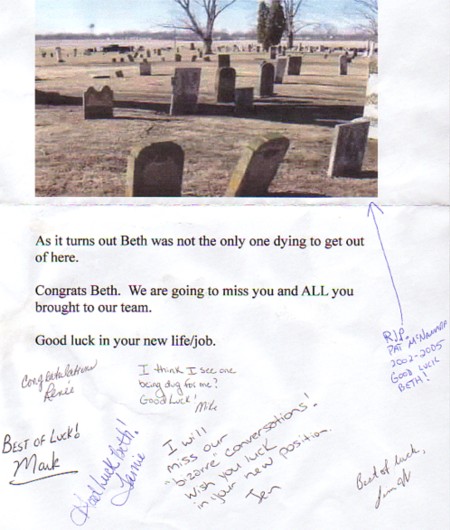 As it turns out Beth was not the only one dying to get out
of here.
Congrats Beth. We are going to miss you and ALL you
brought to our team.
Good luck in your new life/job.
R.I.P.
PAT McNAMARA
2002-2005
GOOD LUCK
BETH!
Congratulations
Renée
I think I see one
being dug for me?
Good Luck!
Mike
BEST OF LUCK!
Mark
Good Luck Beth!
I will
miss our
"bizarre" conversations!
Wish you luck
in your new position.
Jen
Best of luck,